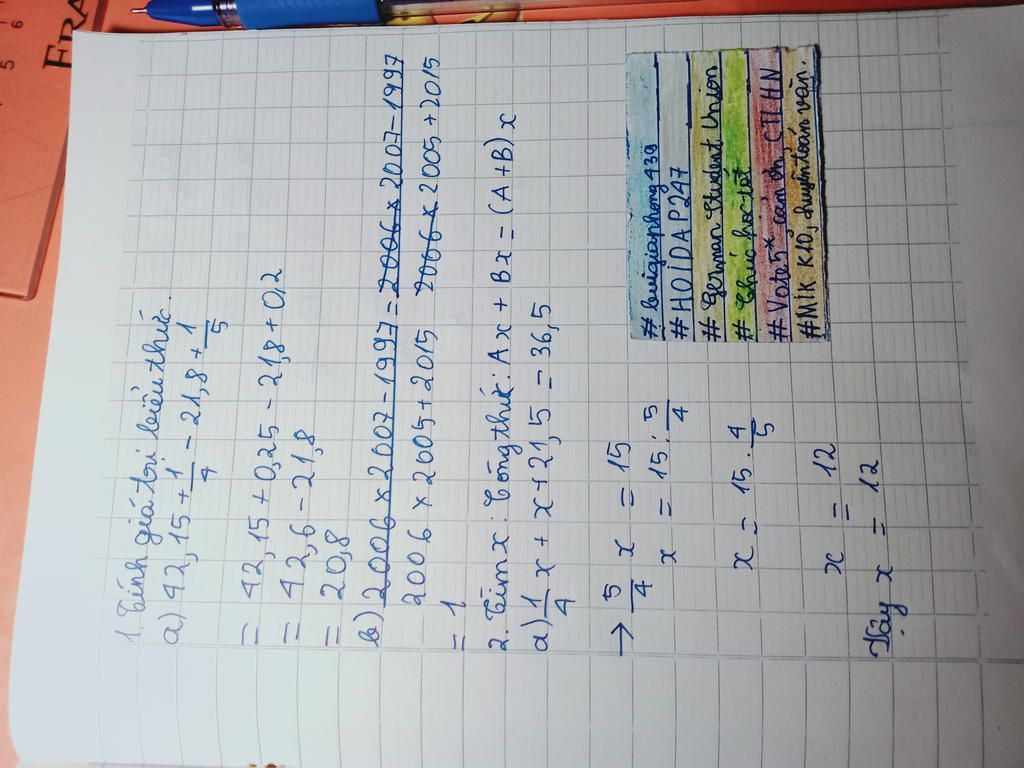 1. Tính giá trị biểu thức.
a) 42,15 + 1/4 - 21,8 + 1/5
= 42,15 + 0,25 - 21,8 + 0,2
= 42,6 - 21,8
= 20,8
b) 2006 × 2007 - 1997 / 2006 × 2005 + 2015 = 2006 × 2007 - 1997 / 2006 × 2005 + 2015
= 1
2. Tìm x: Công thức: Ax + Bx = (A+B)x
a) 1/4 x + x + 21,5 = 36,5
→ 5/4 x = 15
x = 15 : 5/4
x = 15 . 4/5
x = 12
Vậy x = 12
# buigiaphong439
# HOIDAP247
# German Student Union
# Chúc học tốt
# Vote 5* cảm ơn CTLHN
# Mik K10, chuyên toán văn.